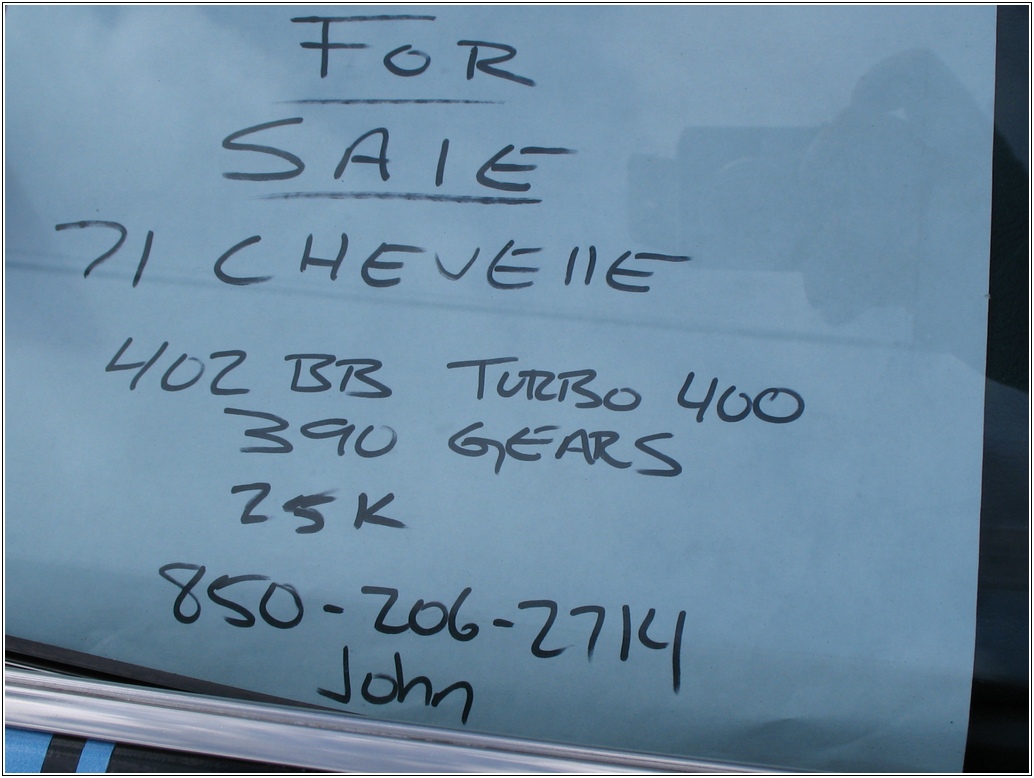 FOR
SAlE
71 CHEVEllE
402 BB TURBO 400
390 GEARS
25K
850-206-2714
John